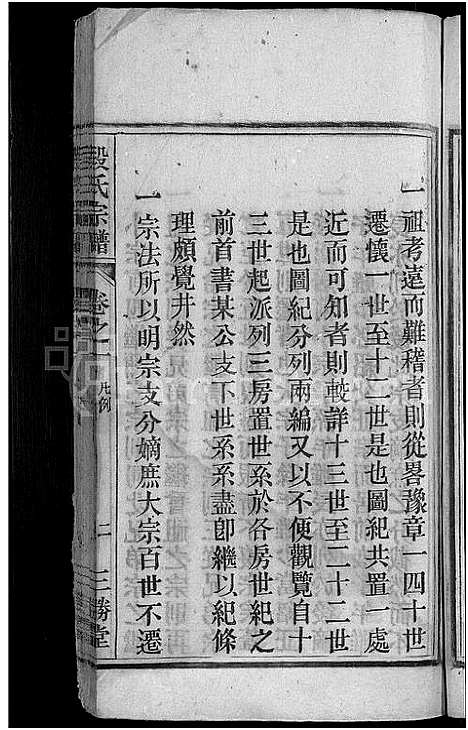 一祖考遠而難稽者則從畧豫章一四十世
遷懷一世至十二世是也圖紀共置一處
近而可知者則較詳十三世至二十二世
是也圖紀分列兩編又以不便觀覽自十
三世起派列三房置世系於各房世紀之
前首書某公支下世系系盡卽繼以紀條
理頗覺井然
一宗法所以明宗支分嫡庶大宗百世不遷
段氏宗譜
卷之一
凡例
二
三勝堂